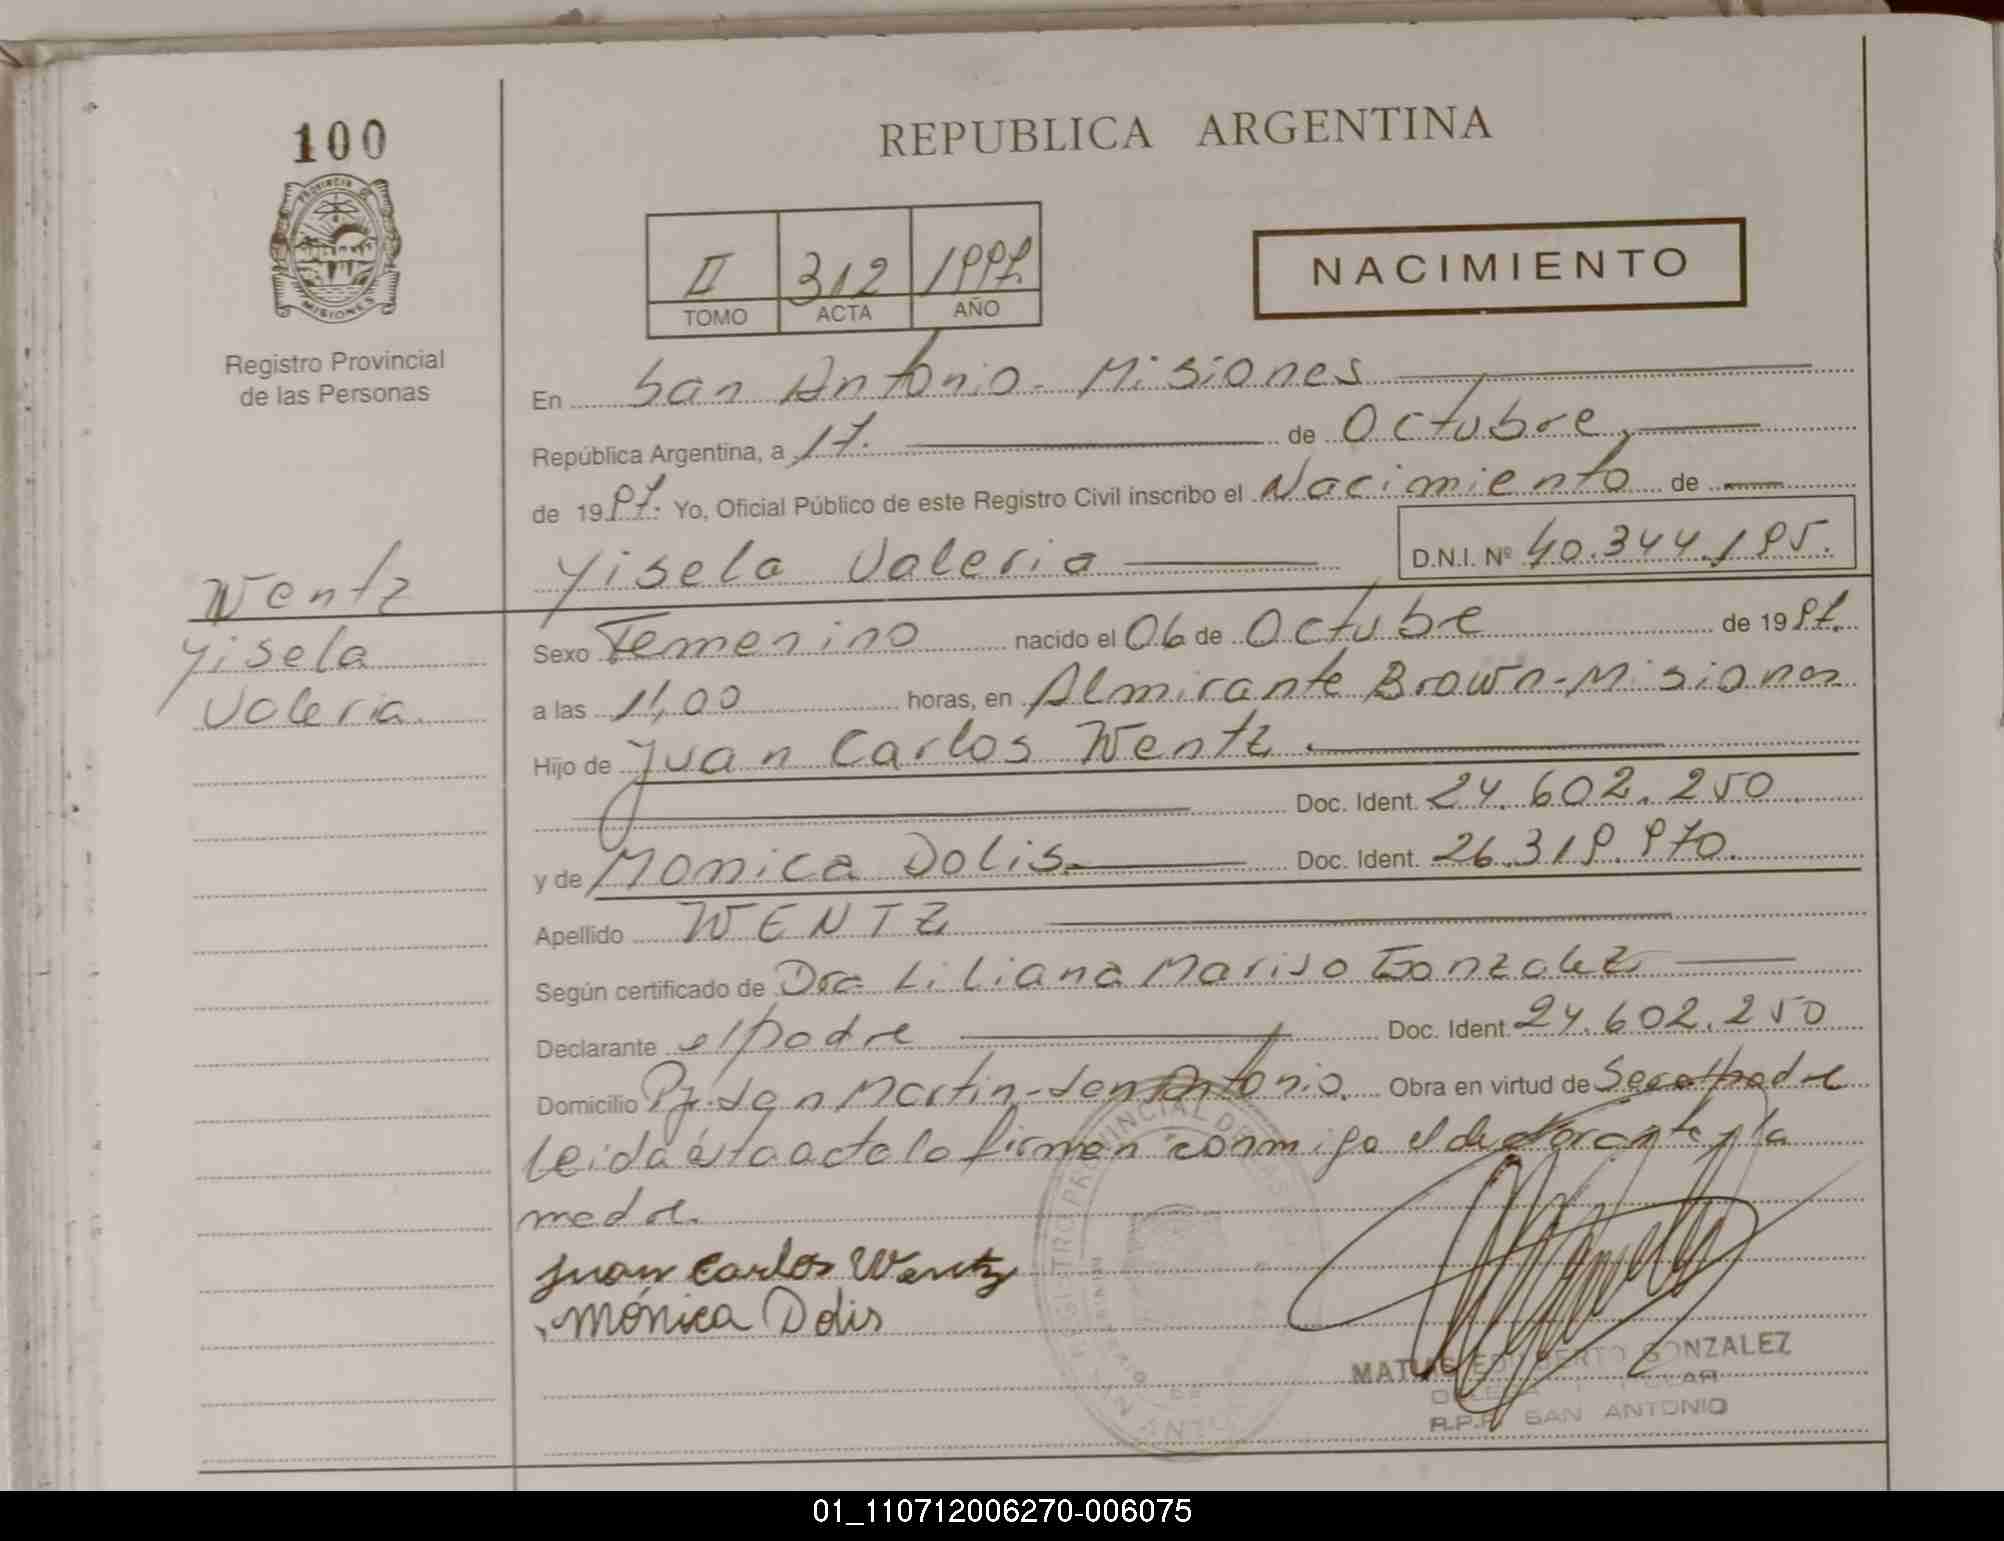 100
PROVINCIA DE
MISIONES
Registro Provincial
de las Personas
REPUBLICA ARGENTINA
II 312 1997.
TOMO ACTA AÑO
NACIMIENTO
En San Antonio - Misiones
República Argentina, a 17. de Octubre
de 1997. Yo, Oficial Público de este Registro Civil inscribo el Nacimiento de
Yisela Valeria D.N.I. Nº 40.344.195.
Wentz
Yisela
Valeria
Sexo Femenino nacido el 06 de Octubre de 1997.
a las 11,00 horas, en Almirante Brown - Misiones
Hijo de Juan Carlos Wentz
Doc. Ident. 24.602.250
y de Monica Dolis. Doc. Ident. 26.319.970.
Apellido WENTZ
Según certificado de Dra. Liliana Gonzalez
Declarante el padre Doc. Ident. 24.602.250
Domicilio San Martin - San Antonio. Obra en virtud de Ser el padre
Leida ésta acta la firman conmigo el declarante y la
madre.
Juan Carlos Wentz
Mónica Dolis
GONZALEZ
R.P.P. SAN ANTONIO
01_110712006270-006075